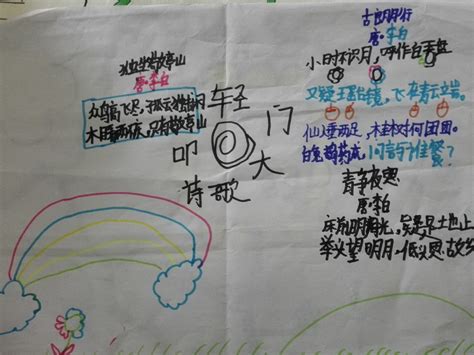 独坐敬亭山
唐·李白
众鸟高飞尽,孤云独去闲
相看两不厌,只有敬亭山
轻
叩
门
大
诗歌
古朗月行
唐·李白
小时不识月,呼作白玉盘
又疑瑶台镜,飞在青云端。
仙人垂两足,桂树何团团。
白兔捣药成,问言与谁餐?
静夜思
唐·李白
床前明月光,疑是地上
举头望明月,低头思故